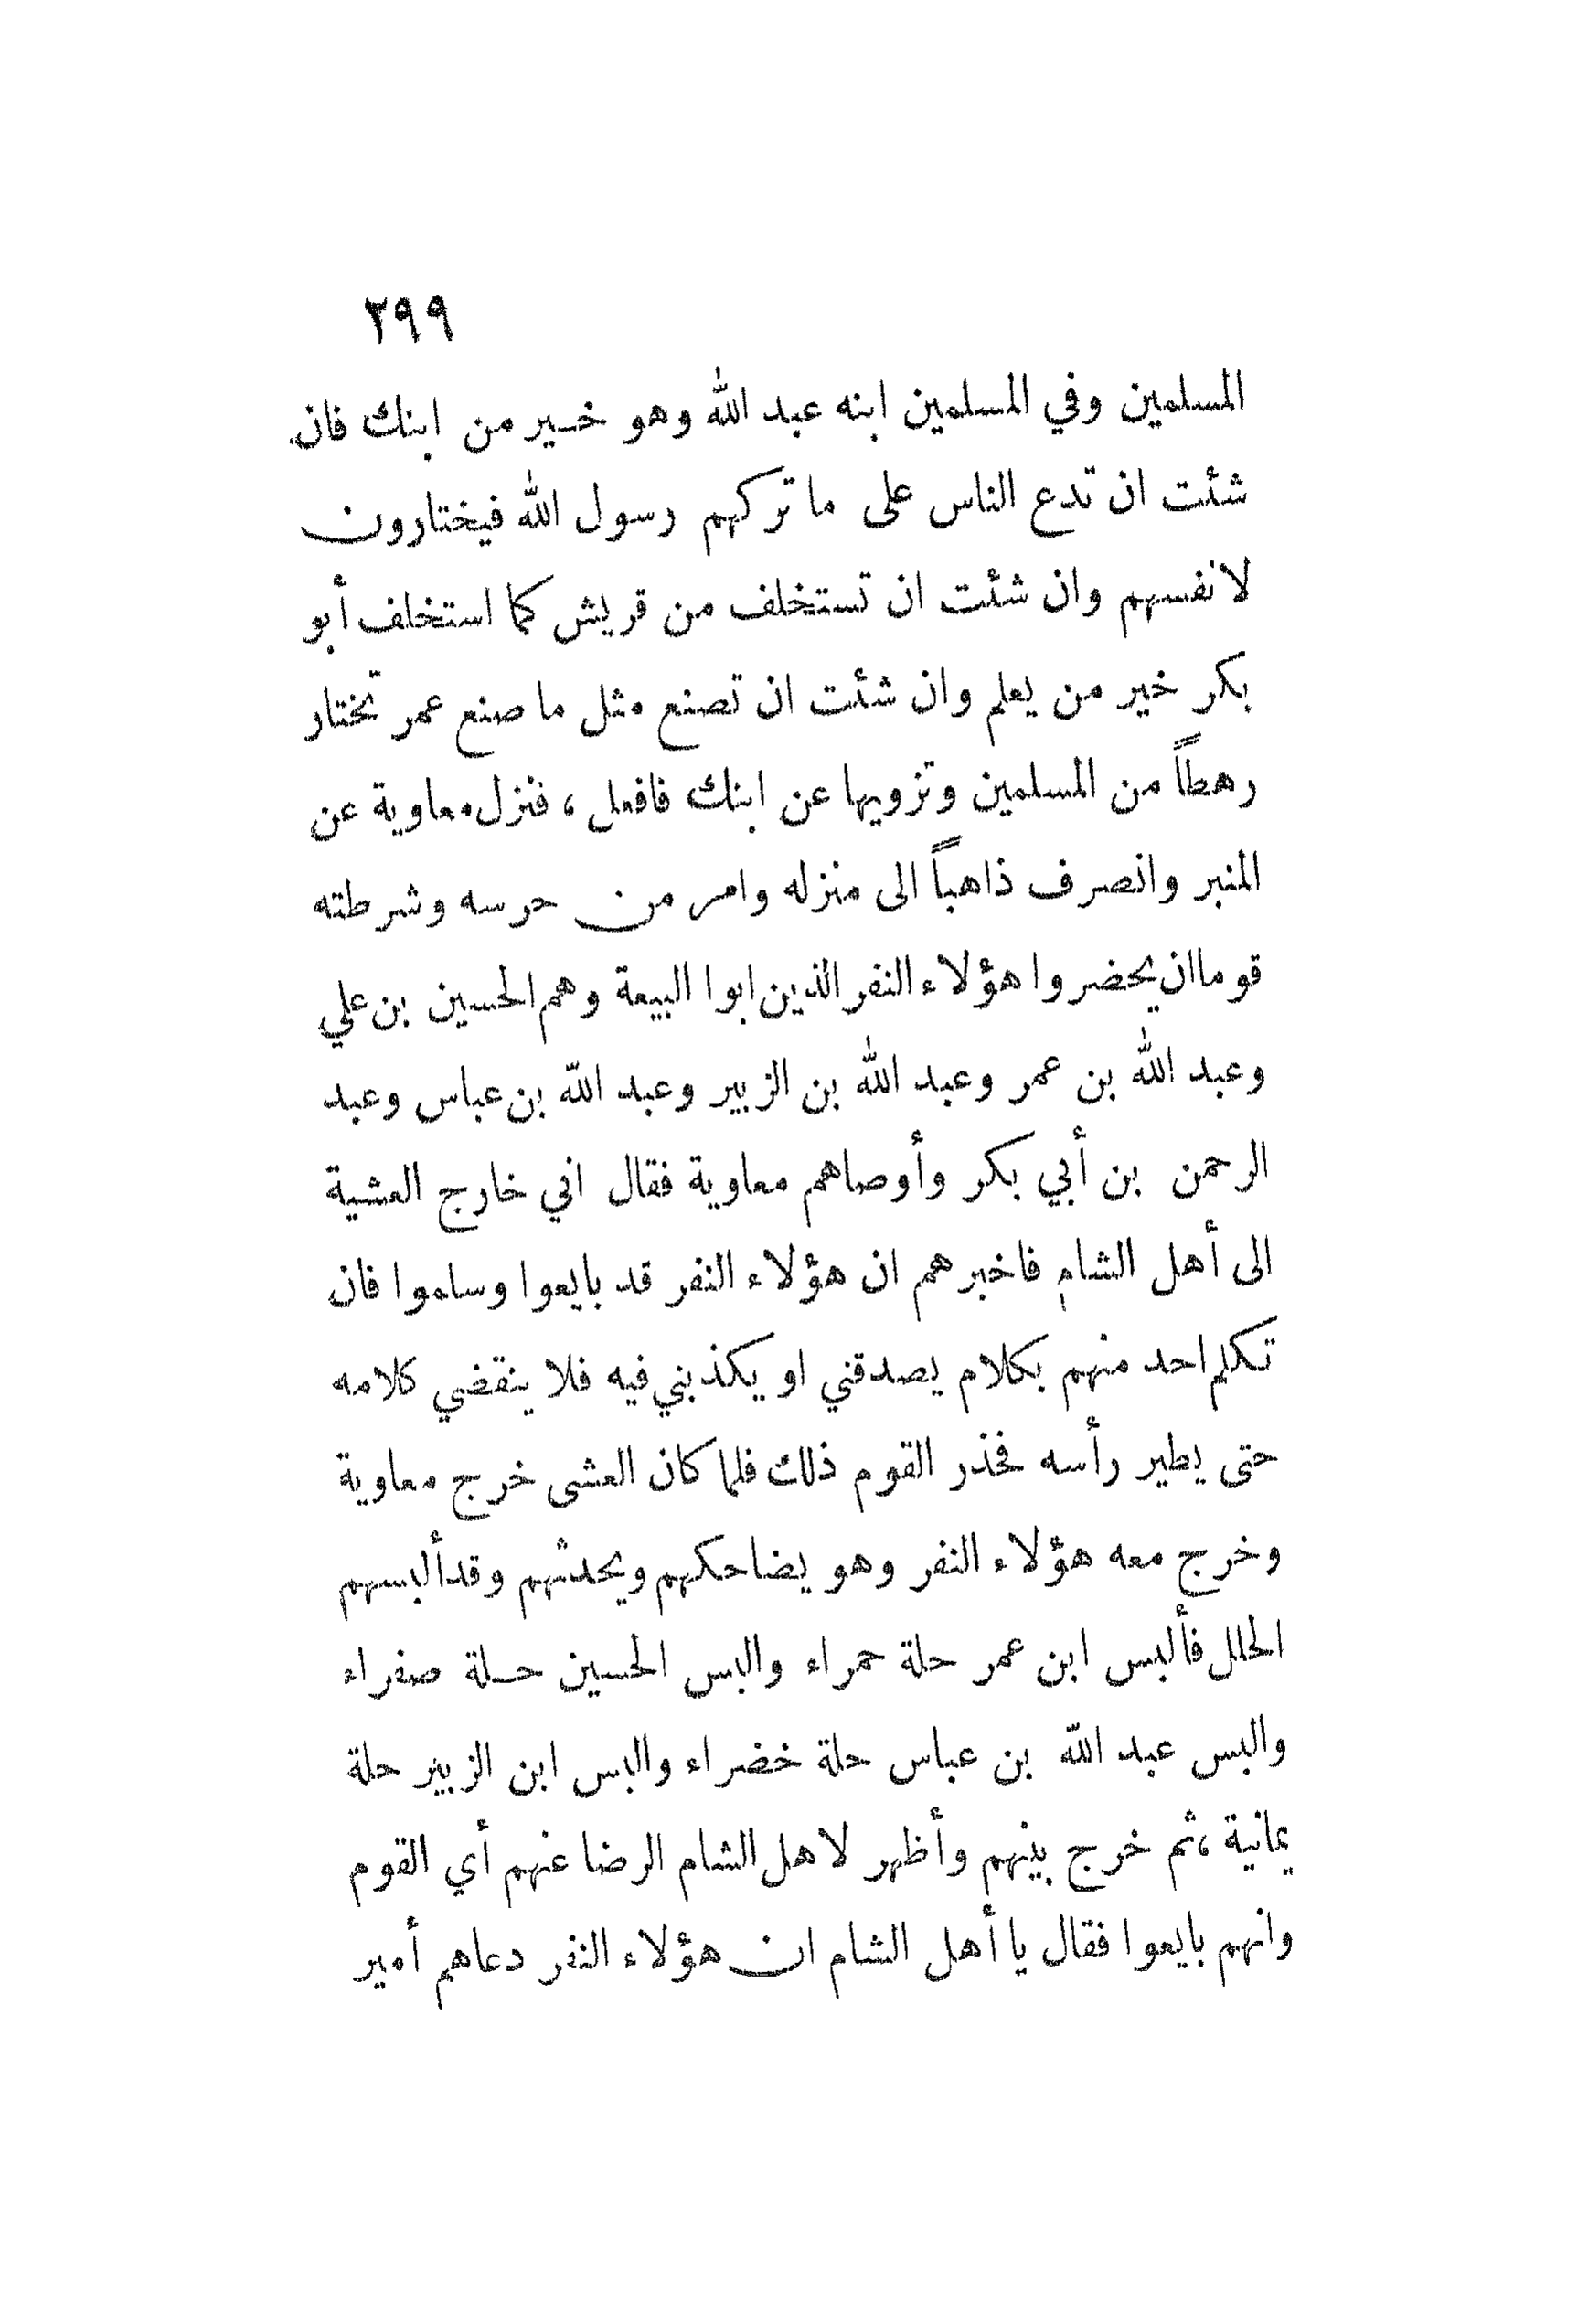 ٢٩٩
المسلمين وفي المسلمين ابنه عبد الله وهو خير من ابنك فان
شئت ان تدع الناس على ما تركهم رسول الله فيختارون
لانفسهم وان شئت ان تستخلف من قريش كما استخلف أبو
بكر خير من يعلم وان شئت ان تصنع مثل ما صنع عمر تختار
رهطاً من المسلمين وتزويها عن ابنك فافعل ، فنزل معاوية عن
المنبر وانصرف ذاهباً الى منزله وامر من حرسه وشرطته
قوما ان يحضروا هؤلاء النفر الذين ابوا البيعة وهم الحسين بن علي
وعبد الله بن عمر وعبد الله بن الزبير وعبد الله بن عباس وعبد
الرحمن بن أبي بكر وأوصاهم معاوية فقال اني خارج العشية
الى أهل الشام فاخبرهم ان هؤلاء النفر قد بايعوا وساموا فان
تكلم احد منهم بكلام يصدقني او يكذبني فيه فلا ينقضي كلامه
حتى يطير رأسه فحذر القوم ذلك فلما كان العشى خرج معاوية
وخرج معه هؤلاء النفر وهو يضاحكهم ويحدثهم وقد ألبسهم
الحلل فألبس ابن عمر حلة حمراء والبس الحسين حلة صفراء
والبس عبد الله بن عباس حلة خضراء والبس ابن الزبير حلة
يمانية ، ثم خرج بينهم وأظهر لاهل الشام الرضا عنهم أي القوم
وانهم بايعوا فقال يا أهل الشام ان هؤلاء النفر دعاهم أمير